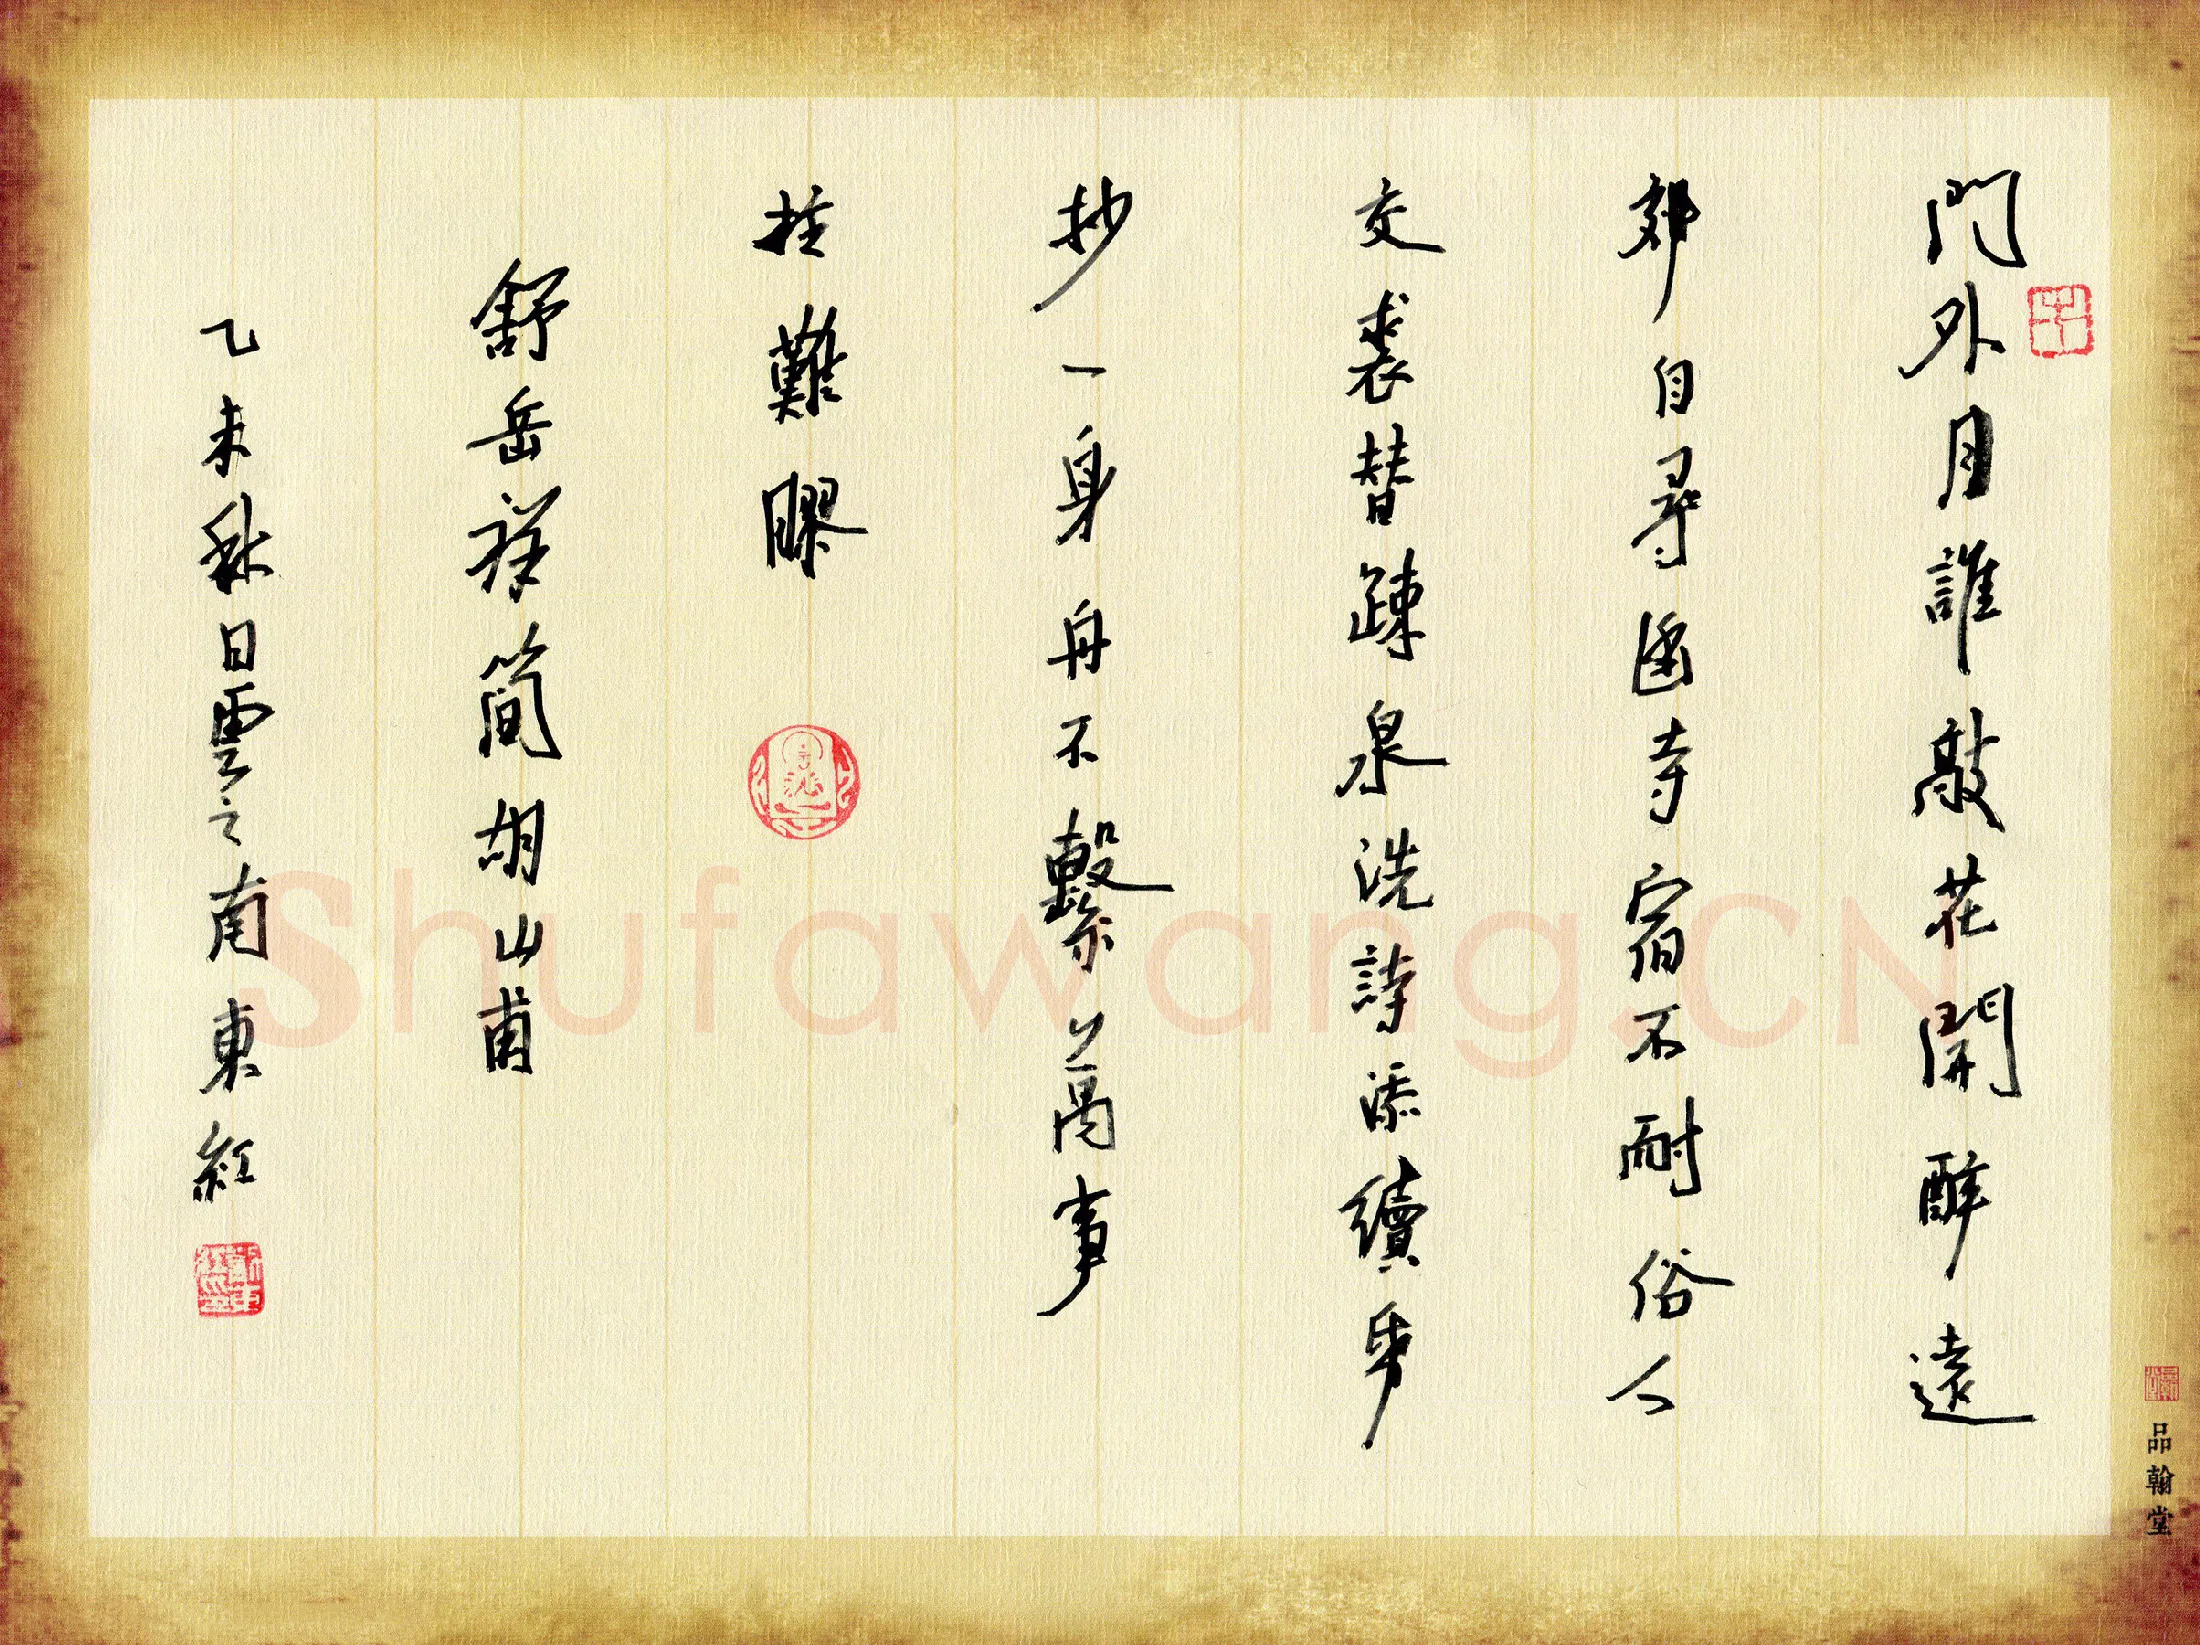 門外月誰敲花開醉遠
郊自尋幽寺宿不耐俗人
交裘替疎泉洗詩添續
抄一身舟不繫萬事
柱難膠
舒岳祥簡胡山甫
乙未秋日雲之南東紅
品翰堂
Shufawang.CN